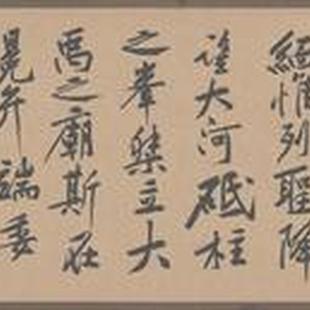 緬惟列聖降
望大河砥柱
之峯桀立大
禹之廟斯在
冕弁端委